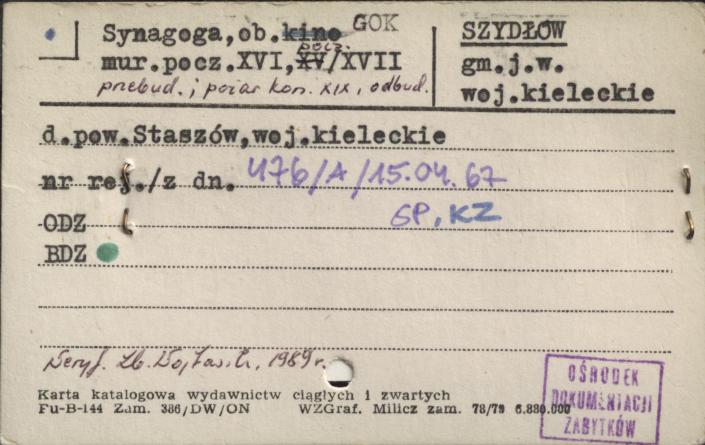 Synagoga,ob.kino GOK
mur.pocz.XVI,XV/XVII pocz.
przebud. i pożar kon. XIX, odbud.
SZYDŁÓW
gm.j.w.
woj.kieleckie
d.pow.Staszów,woj.kieleckie
nr rej./z dn. 476/A/15.04.67
ODZ GP, KZ
BDZ
Weryf. 1989 r.
Karta katalogowa wydawnictw ciągłych i zwartych
Fu-B-144 Zam. 386/DW/ON WZGraf. Milicz zam. 78/79 6.880.000
OŚRODEK
DOKUMENTACJI
ZABYTKÓW